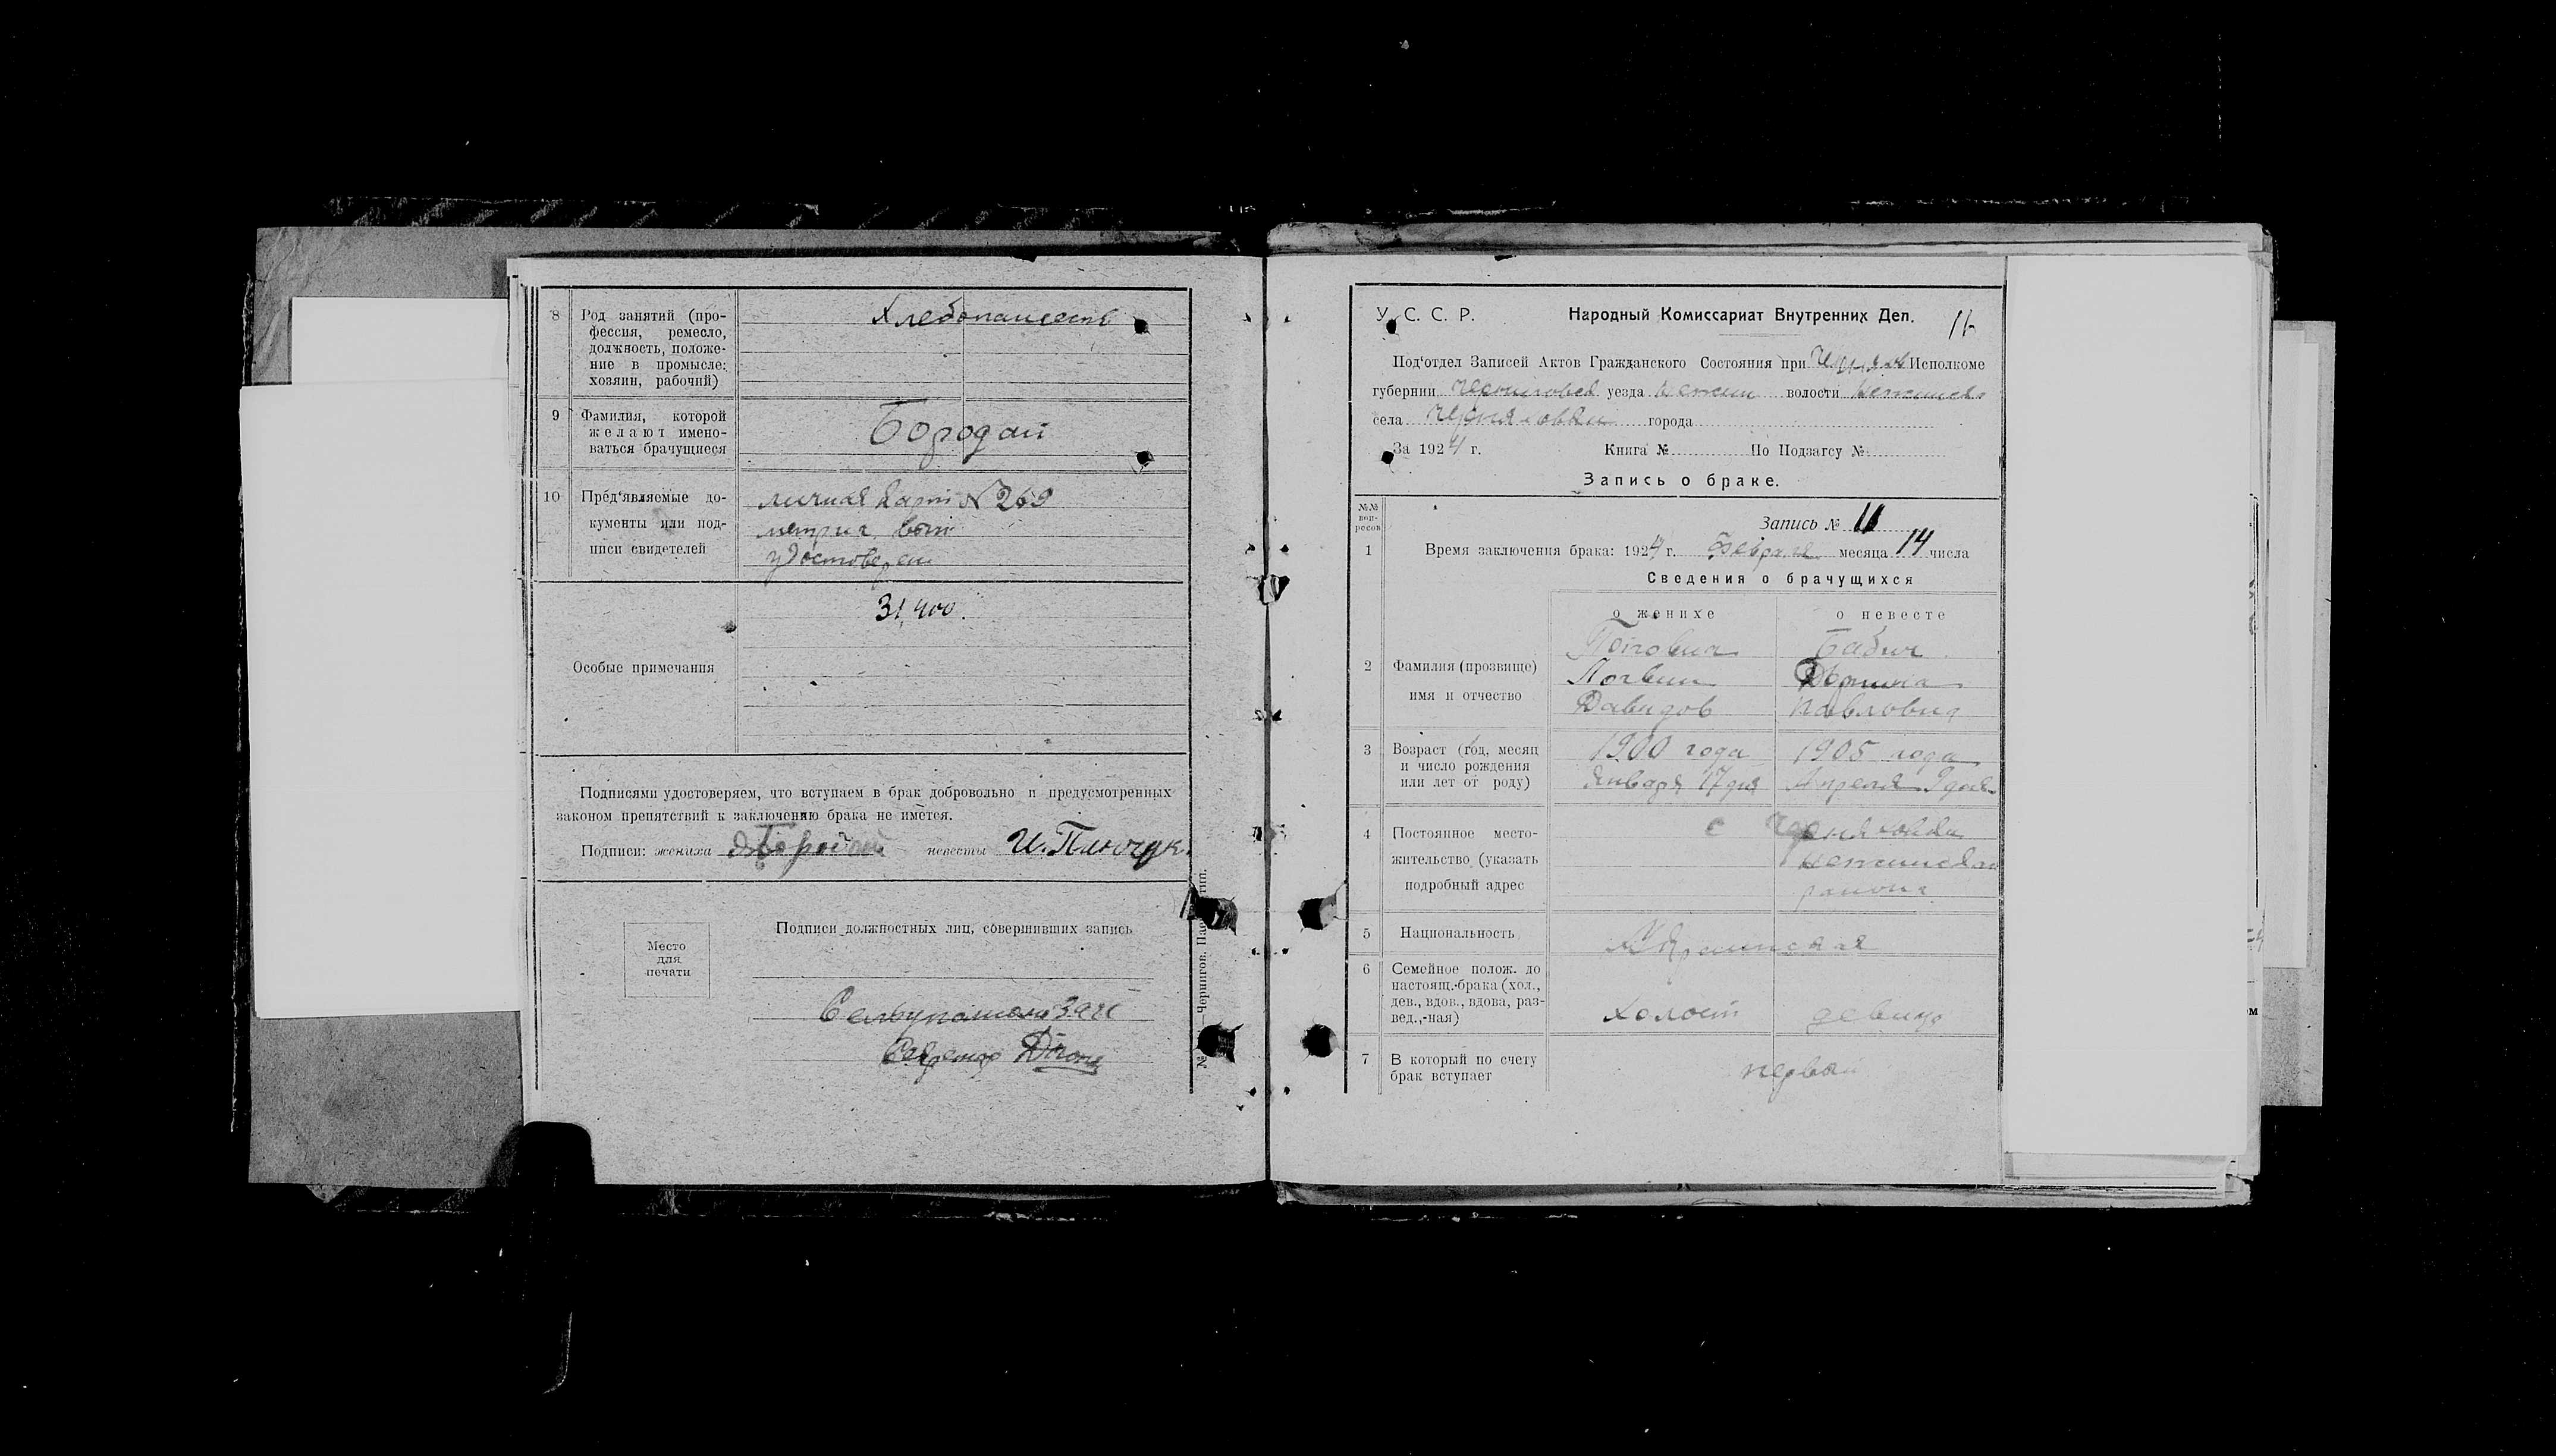 8 Род занятий (про-
фессия, ремесло,
должность, положе-
ние в промысле:
хозяин, рабочий)
Хлебопашест
9 Фамилия, которой
желают имено-
ваться брачущиеся
Бородай
10 Пред‘являемые до-
кументы или под-
писи свидетелей
личная карт №269
метрич. вып
удостоверен
Особые примечания
31,400.
Подписями удостоверяем, что вступаем в брак добровольно и предусмотренных
законом препятствий к заключению брака не имется.
Подписи: жениха Бородай невесты И. Плющук.
Место
для
печати
Подписи должностных лиц, совершивших запись
Секретар
Чернигов.
У. С. С. Р. Народный Комиссариат Внутренних Дел. 11
Под‘отдел Записей Актов Гражданского Состояния при Исполкоме
губернии Черниговск уезда Нежин волости Нежинск
села Черняховки города
За 1924 г. Книга № По Подзагсу №
Запись о браке.
№№
воп-
росов
Запись № 11
1 Время заключения брака: 1924 г. Февраля месяца 14 числа
Сведения о брачущихся
о женихе о невесте
2 Фамилия (прозвище)
имя и отчество
Бабич
Логвин
Давидов Павловна
3 Возраст (год, месяц
и число рождения
или лет от роду)
1900 года 1905 года
Января 17 дня Апреля 9 дня
4 Постоянное место-
жительство (указать
подробный адрес
с Черняховки
Нежинскаго
района
5 Национальность
Украинская
6 Семейное полож. до
настоящ. брака (хол.,
дев., вдов., вдова, раз-
вед.,-ная)
холост девица
7 В который по счету
брак вступает
первый